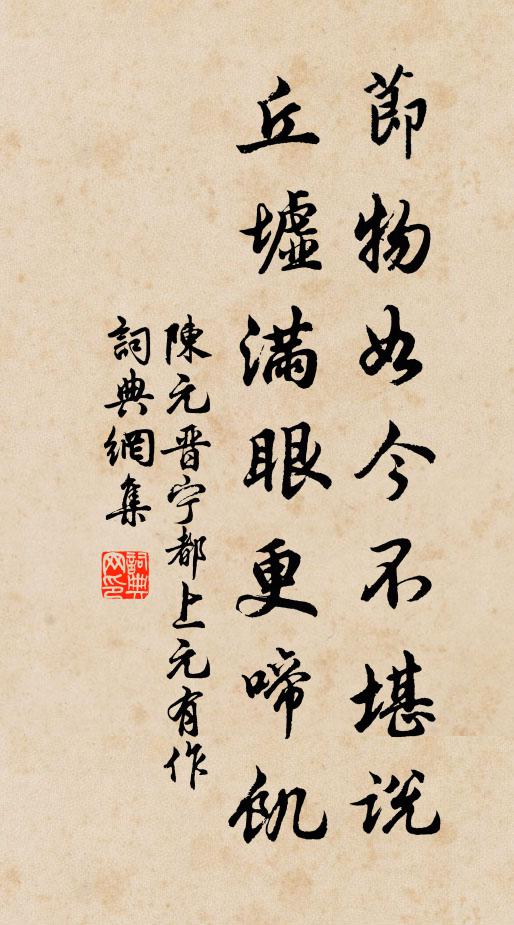 節物如今不堪說
丘墟滿眼更啼飢
陳元晋宁都上元有作
詞典網集
詞典網印